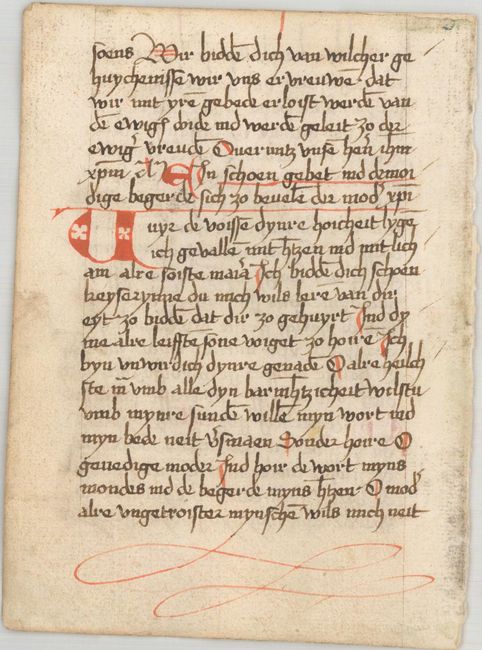 soens Wir biddē dich van wilcher ge
huychenisse wir vns ervreuwē · dat
wir mit yrē gebede erloist werdē van
dē ewigē doide ind werdē geleit zo der
ewig' vreudē Ouermitz vnsē hern ihm
xpm Eyn schoen gebet ind demoi
dige begerde sich zo beuelē der mod' xpi
Vuyr de voisse dynre hoicheit lyge
ich gevallē mit h'tzen ind mit lich
am alre soiste maria Ich biddē dich schoen
keyserynne du mich wils lerē van dir
eyt zo biddē dat dir zo gehuyrt Ind dy
me alre leiffstē sone voiget zo hoirē Ich
byn vnwirdich dynre genadē O alre heilch
ste vmb alle dyn barmh'tzicheit wilstu
vmb mynre sundē willē myn wort ind
myn bede neit v'smaen Sonder hoire O
genedige moder Ind hoir de wort myns
mondes ind de begerde myns h'tzen · O mod'
alre vngetroister mynschē wils mich neit